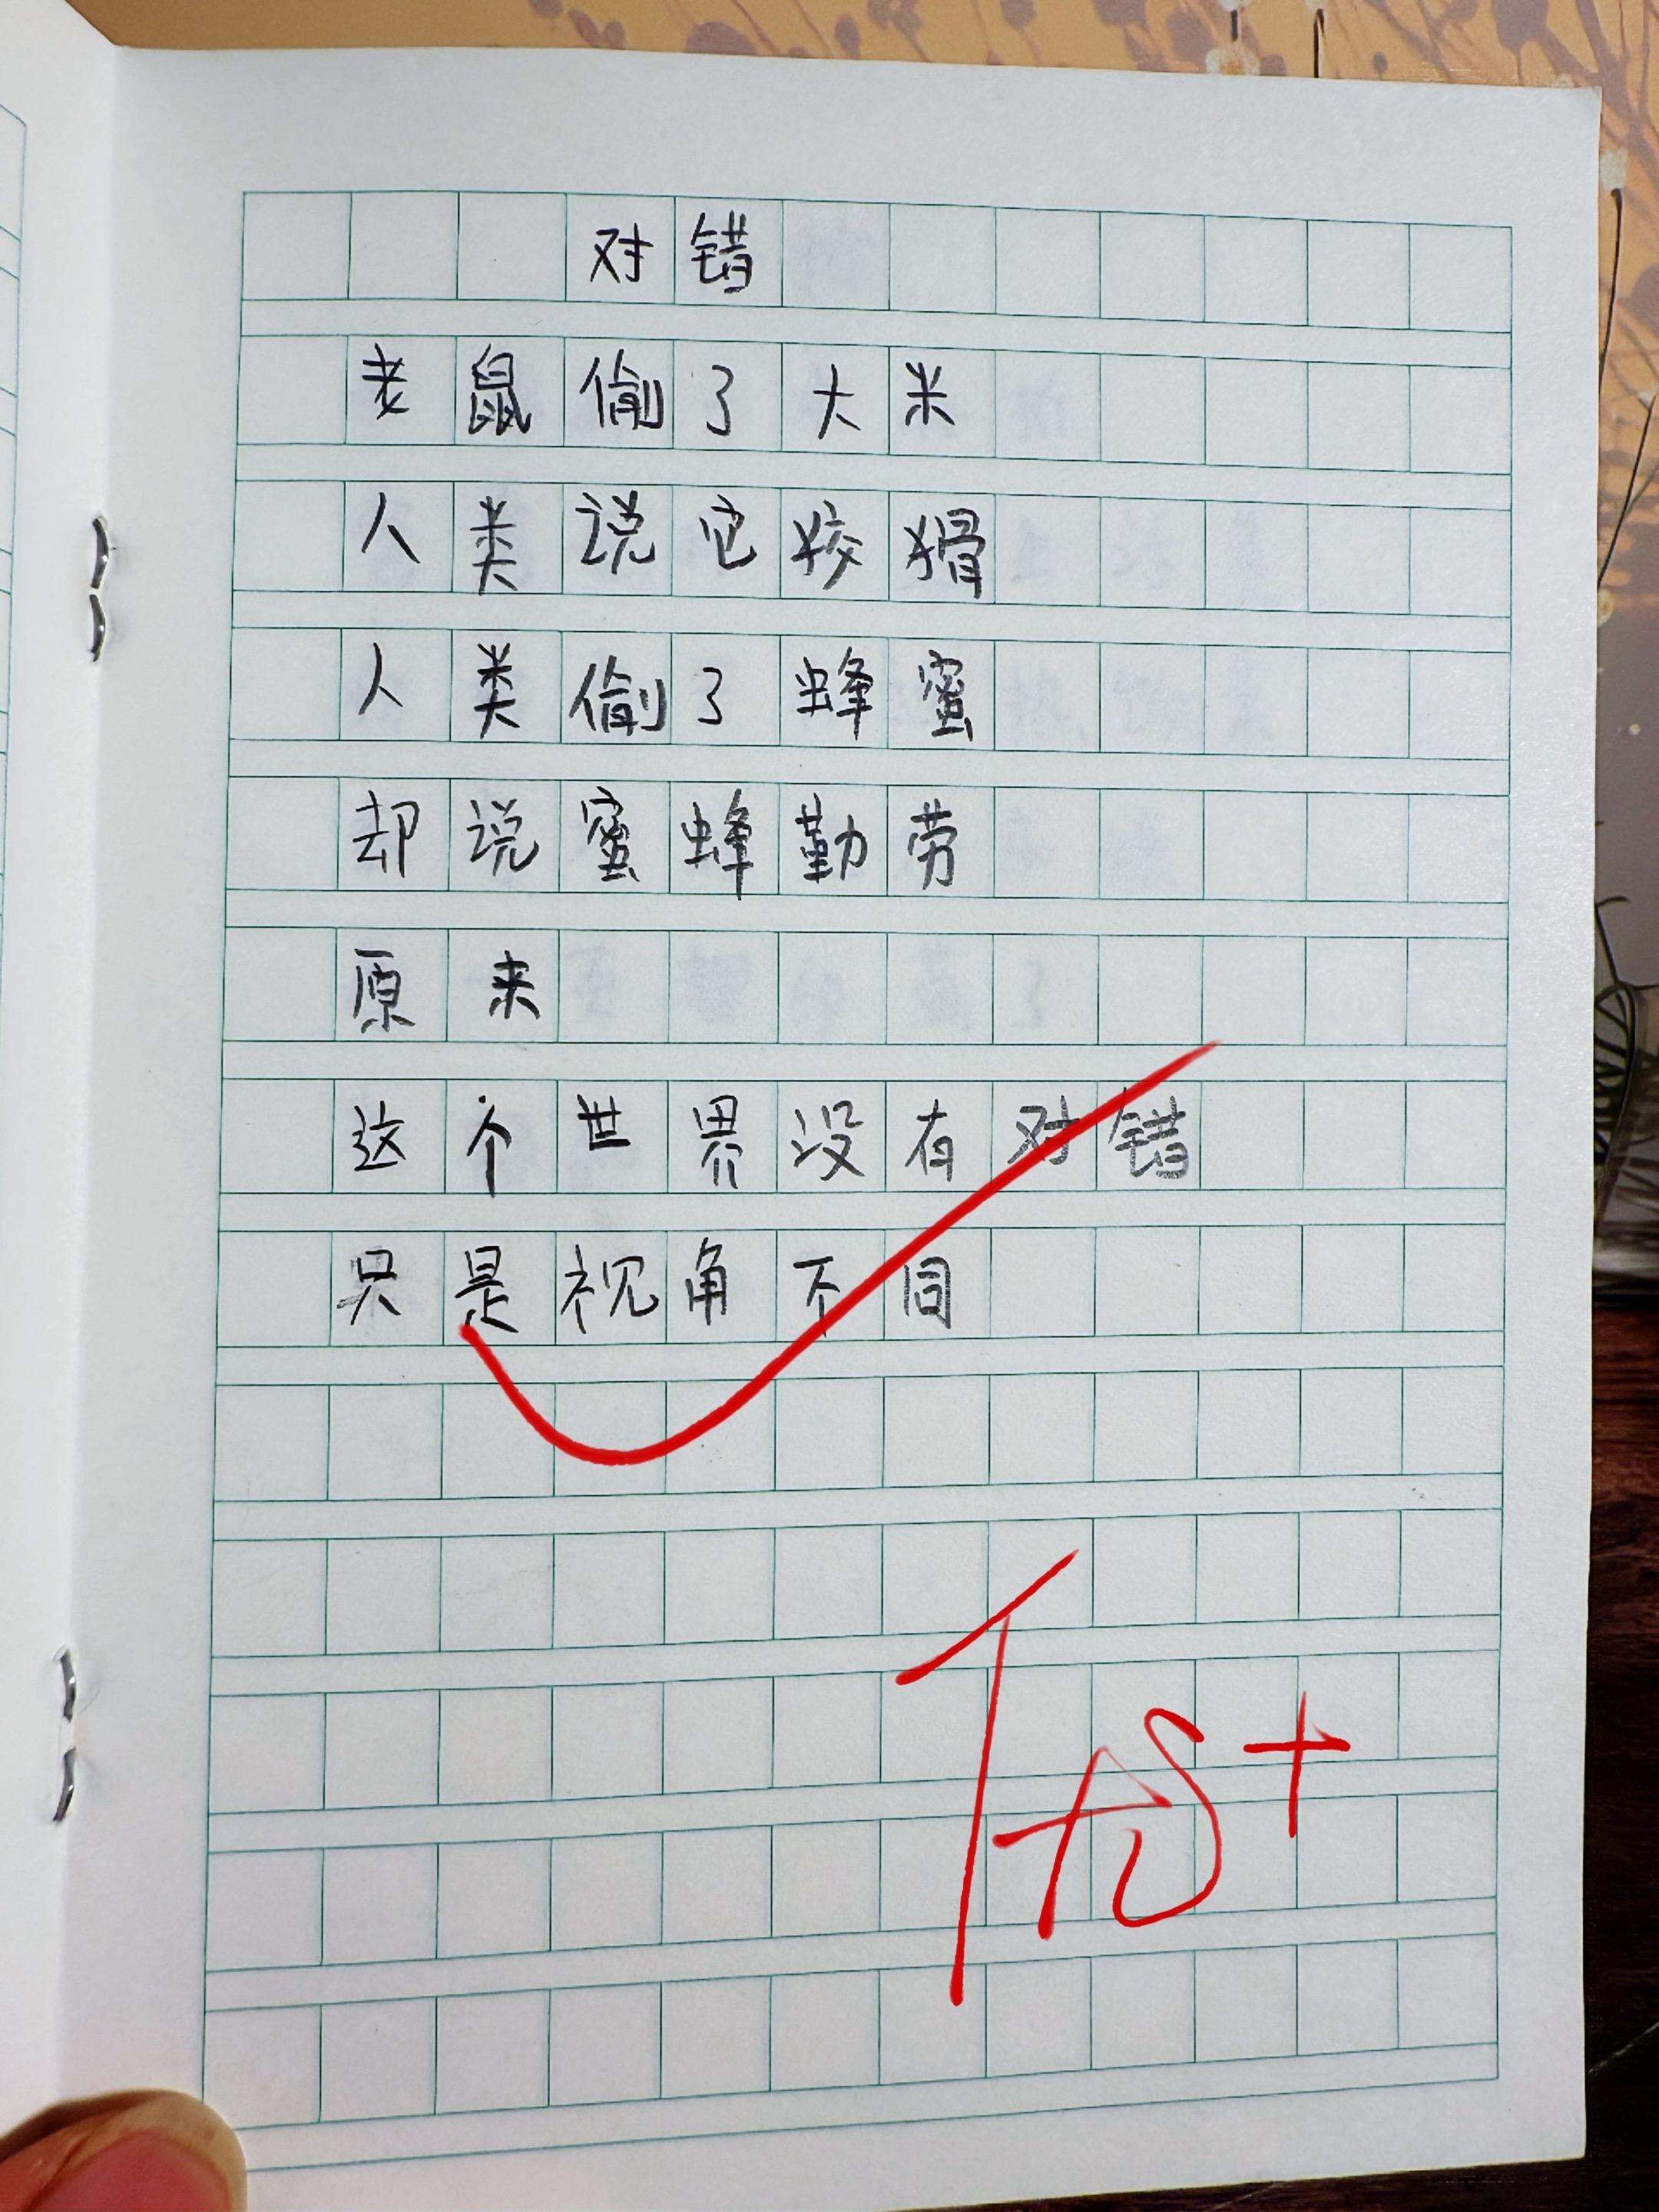 对错
老鼠偷了大米
人类说它狡猾
人类偷了蜂蜜
却说蜜蜂勤劳
原来
这个世界没有对错
只是视角不同